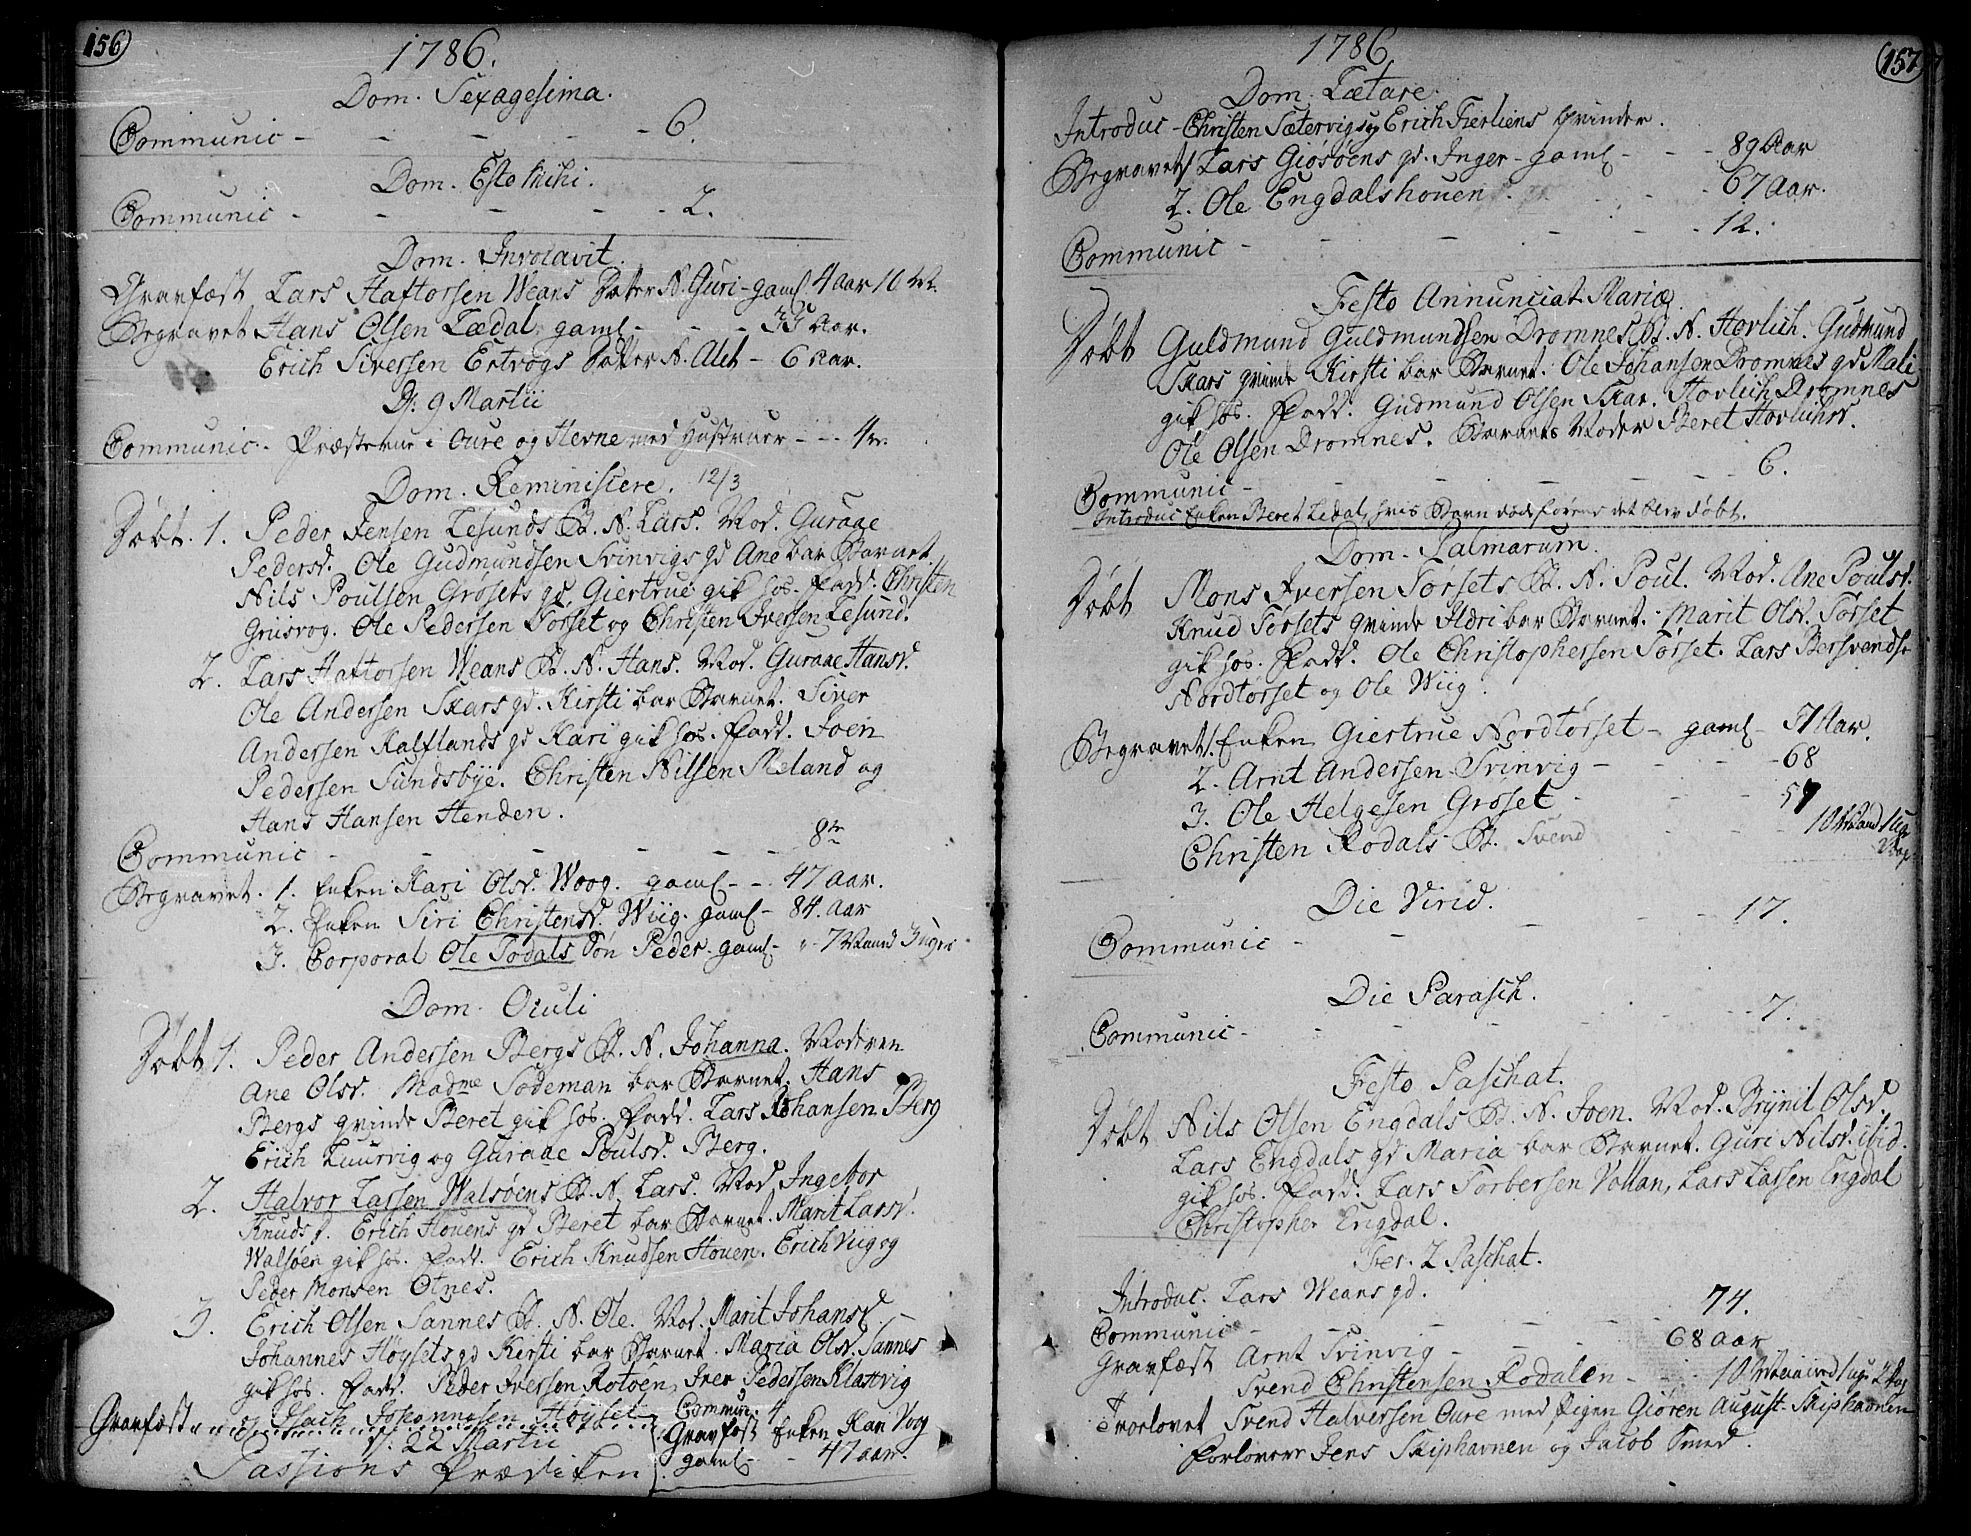 156
1786.
Dom. Sexagesima.
Communic - - - - - 6.
Dom. Esto Mihi.
Communic - - - - - 2.
Dom. Invocavit.
Gravfæst Lars Haftorsen Weans Datter N. Guri - gaml 4 Aar 10 M.
Begravet Hans Olsen Lædal gaml - - - 33 Aar.
Erich Siversen Ertvogs Datter N. Alet - 6 Aar.
D. 9 Martii
Communic - Præsterne i Oure og Hevne med Hustruer - - - 4re
Dom. Reminiscere. 12/3
Døbt. 1. Peder Jensen Lesunds B. N. Lars. Mod. Guraae
Pedersd. Ole Gudmundsen Svinvigs qd Ane bar Barnet
Nils Poulsen Grøsets qd. Giertrue gik hos. Fadd. Christen
Grisvog. Ole Pedersen Torset og Christen Iversen Lesund.
2. Lars Haftorsen Weans B. N. Hans. Mod. Guraae Hansd.
Ole Andersen Skars qd. Kirsti bar Barnet. Siver
Andersen Kalflands qd Kari gik hos. Fadd. Joen
Pedersen Sundsbye. Christen Nilsen Meland og
Hans Hansen Henden.
Communic - - - - - 8te
Begravet. 1. Enken Kari Olsd. Woog. gaml - - 47 Aar.
2. Enken Siri Christensd. Wiig. gaml - 84. Aar
3. Corporal Ole Todals Søn Peder - gaml - " - 7 Maand 3 uger
Dom. Oculi
Døbt 1. Peder Andersen Bergs B. N. Johanna. Moderen
Ane Olsd. Madme Sodeman bar Barnet. Hans
Bergs qvinde Beret gik hos. Fadd. Lars Johansen Berg
Erich Luurvig og Guraae Poulsd. Berg.
2. Halvor Larsen Walsøens B. N. Lars. Mod. Ingebor
Knudsd. Erich Hovens qd Beret bar Barnet. Marit Larsd.
Walsøen gik hos. Fadd. Erich Knudsen Hoven. Erich Viig og
Peder Monsen Otnes.
3. Erich Olsen Sannes B. N. Ole. Mod. Marit Johansd.
Johannes Høysets qd Kirsti bar Barnet. Maria Olsd. Sannes
gik hos. Fadd. Peder Iversen Rotøen, Iver Pedersen Klaxvig
og Isach Johannesen Høyset
Commun. 4
Gravfæst
D. 22 Martii
Passions Prædiken
Gravfæst Enken Kari Voog
gaml - - 47 aar.
157
1786
Dom. Lætare.
Introduc - Christen Sætervigs og Erich Fierliens qvinder.
Begravet 1. Lars Giøsøens qd. Inger - gaml - - - 89 Aar
2. Ole Engdalshouen - - 67 Aar.
Communic - - - - - 12.
Festo Annunciat. Mariæ
Døbt Guldmund Guldmundsen Dromnes B. N. Hovlich. Gudmund
Skars qvinde Kirsti bar Barnet. Ole Johansen Dromnes qd Mali
gik hos. Fadd. Gudmund Olsen Skar. Hovlich Dromnes
Ole Olsen Dromnes. Barnets Moder Beret Hovlichsd.
Communic - - - - - 6.
Introduc Enken Beret Ledal, hvis Barn døde førend det blev døbt.
Dom. Palmarum.
Døbt Mons Iversen Torsets B. N. Poul. Mod. Ane Poulsd.
Knud Torsets qvinde Ildri bar Barnet. Marit Olsd. Torset
gik hos. Fadd. Ole Christophersen Torset. Lars Bersvends.
Nordtorset og Ole Wiig.
Begravet 1. Enken Giertrue Nordtorset - gaml - 71 Aar.
2. Arnt Andersen Svinvig - - - - 68
3. Ole Helgesen Grøset - - - 57
Christen Rodals B. Svend - - 10 Maand 1 ug.
2 Dag
Die Virid.
Communic - - - - - 17.
Die Parasch.
Communic - - - - - 7.
Festo Paschat.
Døbt Nils Olsen Engdals B. N. Joen. Mod. Brynil Olsd.
Lars Engdals qd Maria bar Barnet. Guri Nilsd. ibid.
gik hos. Fadd. Lars Torbersen Vollan, Lars Larsen Engdal
Christopher Engdal.
Fer. 2 Paschat.
Introduc. Lars Weans qd.
Communic - - - - - 74.
Gravfæst Arnt Svinvig - - - 68 aar
Svend Christensen Rodalen - - 10 Maaned 1 uge 2 Dag
Trolovet Svend Halversen Oure med Pigen Giøren August. Skiphavnen
Forlovere Jens Skiphavnen og Jacob Smed.